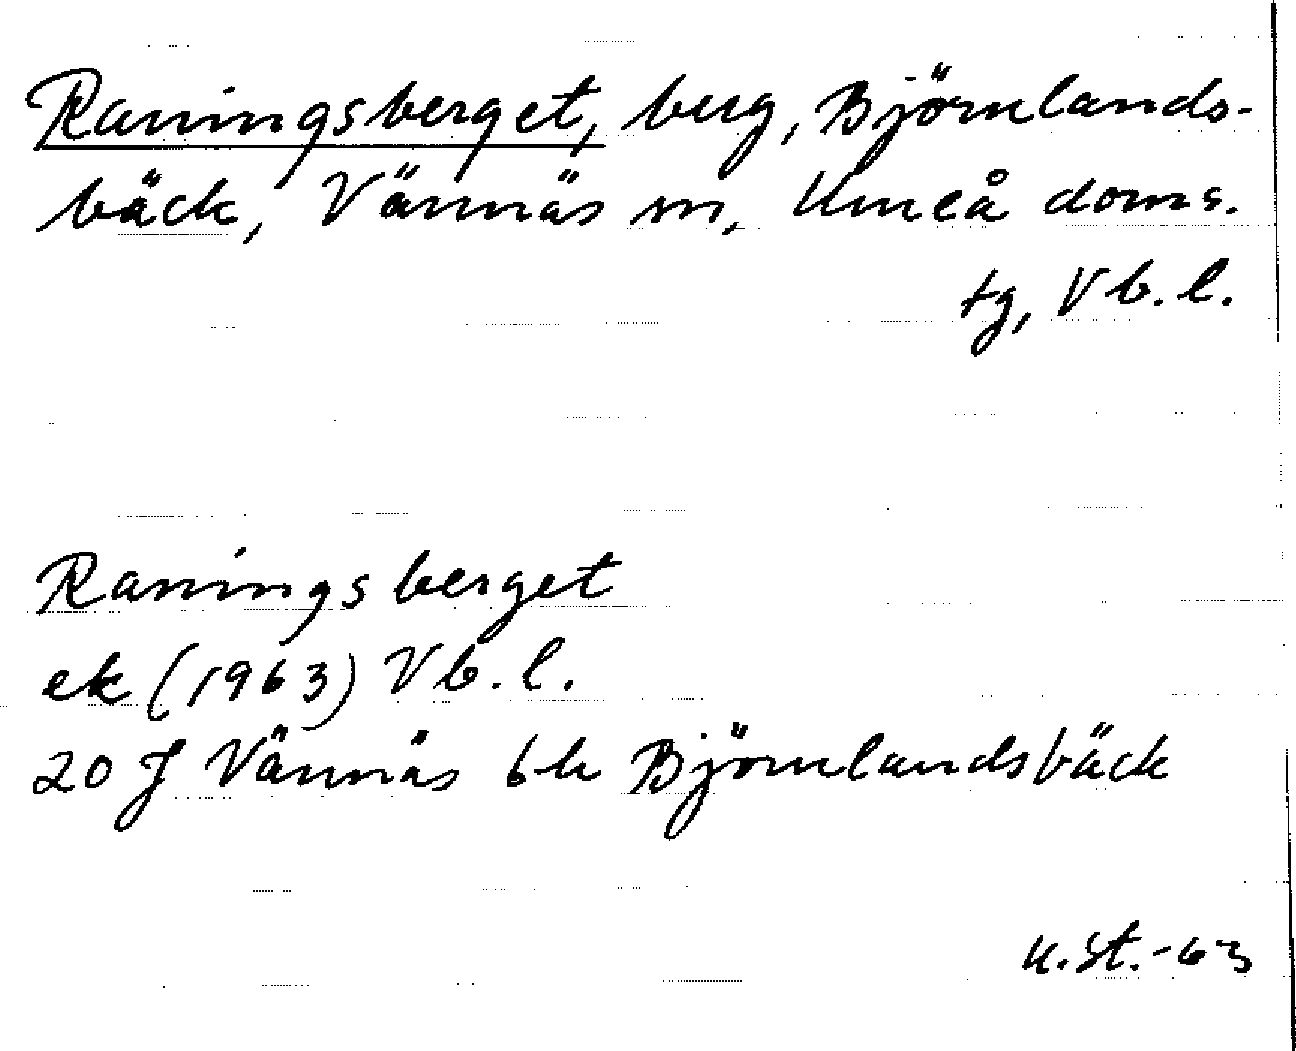 Raningsberget, berg, Björnlands-
bäck, Vännäs sn, Umeå doms.
tg, Vb. l.
Raningsberget
ek (1963) Vb. l.
20 J Vännäs 6h Björnlandsbäck
K. St. -63